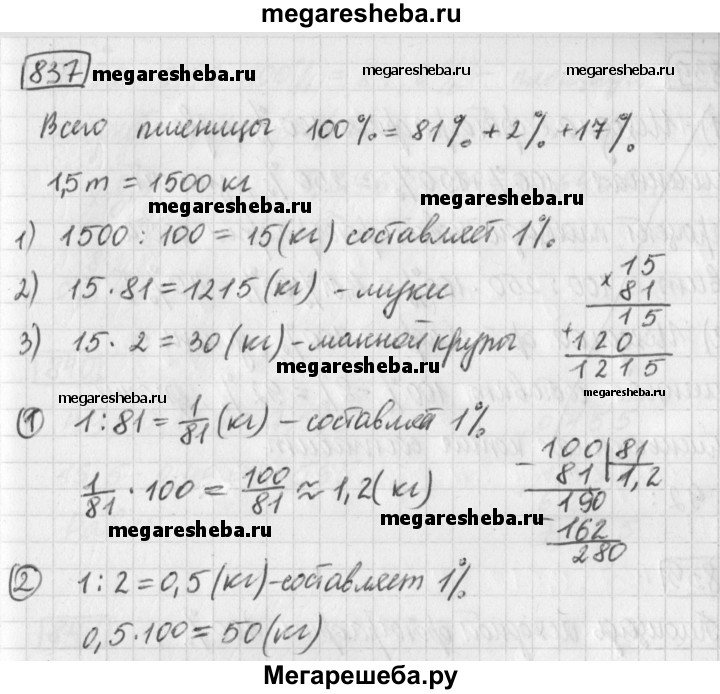 megaresheba.ru
837 megaresheba.ru megaresheba.ru
Всего пшеницы 100% = 81% + 2% + 17%
1,5 т = 1500 кг
megaresheba.ru megaresheba.ru
1) 1500 : 100 = 15 (кг) составляет 1%
2) 15 · 81 = 1215 (кг) - муки
3) 15 · 2 = 30 (кг) - манной крупы
15
× 81
15
+ 120
1215
megaresheba.ru megaresheba.ru
megaresheba.ru
① 1 : 81 = 1/81 (кг) - составляет 1%
1/81 · 100 = 100/81 ≈ 1,2 (кг)
100 | 81
- 81 | 1,2
190
- 162
280
megaresheba.ru megaresheba.ru
② 1 : 2 = 0,5 (кг) - составляет 1%
0,5 · 100 = 50 (кг)
Мегарешеба.ру